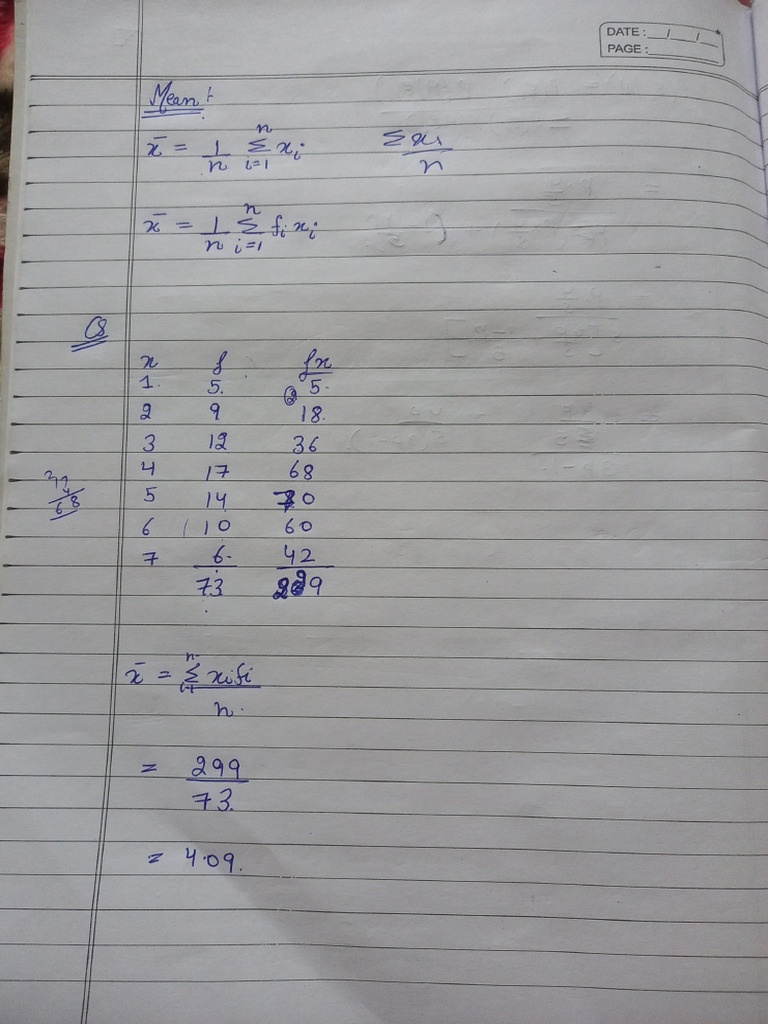 DATE: __/__/__
PAGE: ______
Mean :
x̄ = 1/n Σ_{i=1}^{n} x_i    Σx_i/n
x̄ = 1/n Σ_{i=1}^{n} f_i x_i
Q
x f fx
1. 5. 5.
2 9 18.
3 12 36
4 17 68
5 14 70
6 10 60
7 6. 42
73 299
68
x̄ = Σ_{i=1}^{n} x_i f_i / n.
= 299/73.
= 4.09.